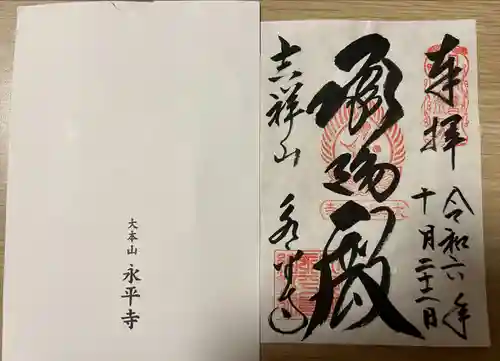 大本山
永平寺
奉拝
令和六年
十月二十二日
承陽殿
吉祥山
永平寺